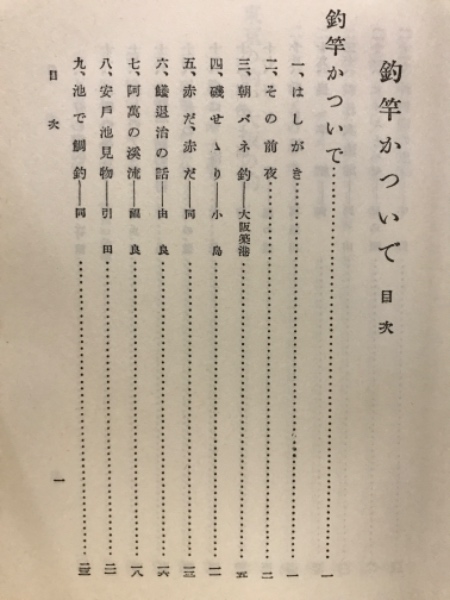 釣竿かついで 目次
釣竿かついで……一
一、はしがき……一
二、その前夜……二
三、朝バネ釣──大阪築港……五
四、磯せゝり──小島……一一
五、赤だ、赤だ──同……一三
六、鱶退治の話──由良……一六
七、阿萬の溪流──福良……一八
八、安戸池見物──引田……二一
九、池で鯛釣──同……二三
目次 一